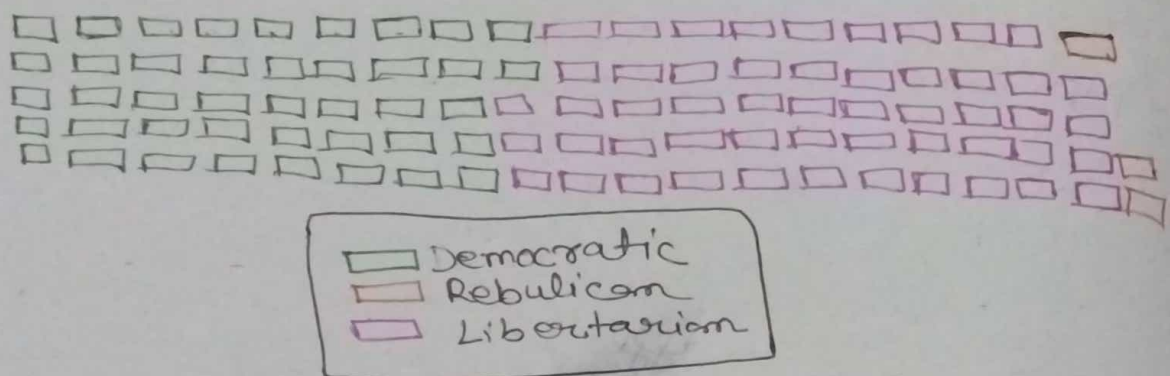 Democratic
Rebulicam
Libertariam